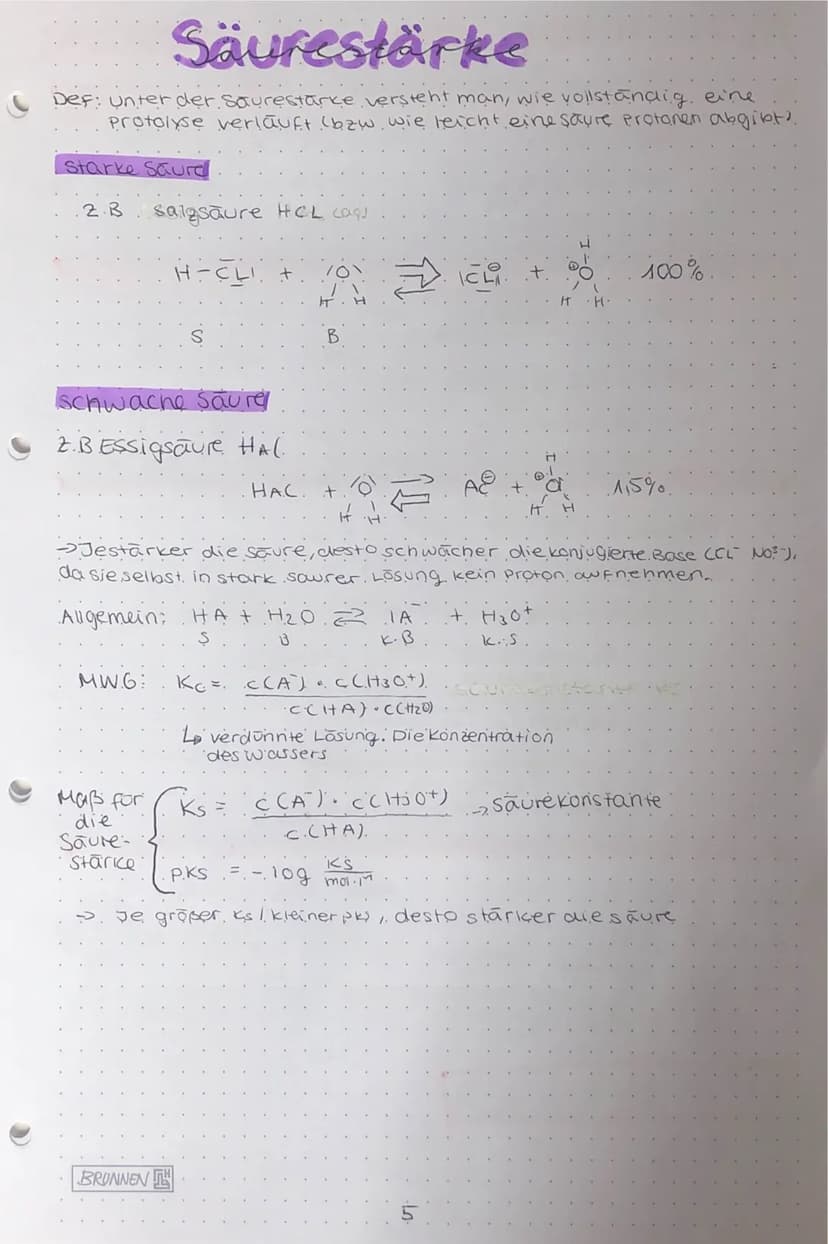 Säurestärke
Def: Unter der Säurestärke versteht man, wie vollständig eine
Protolyse verläuft (bzw. wie leicht eine Säure Protonen abgibt).
Starke Säure
Z.B. Salzsäure HCL (aq)
H-CLI + IOI ⇌ ICLI⊖ + ⊕O 100%
H
H H H H
S B
Schwache Säure
Z.B Essigsäure HAC
HAC + O ⇌ AC⊖ + ⊕O 1,5%
H
H H H H
→ Je stärker die Säure, desto schwächer die konjugierte Base (CL⁻ NO³⁻),
da sie selbst in stark saurer Lösung kein Proton aufnehmen.
Allgemein: HA + H2O ⇌ IA⁻ + H3O+
S B K.B K.S
MWG: Kc = c(A⁻) · c(H3O+)
c(HA) · c(H2O)
↳ verdünnte Lösung: Die Konzentration
des Wassers
Maß für
die
Säure-
stärke
Ks = c(A⁻) · c(H3O+) → Säurekonstante
c(HA)
pKs = -log Ks
mol·l⁻¹
→ Je größer Ks / kleiner pKs, desto stärker die Säure
BRUNNEN
5